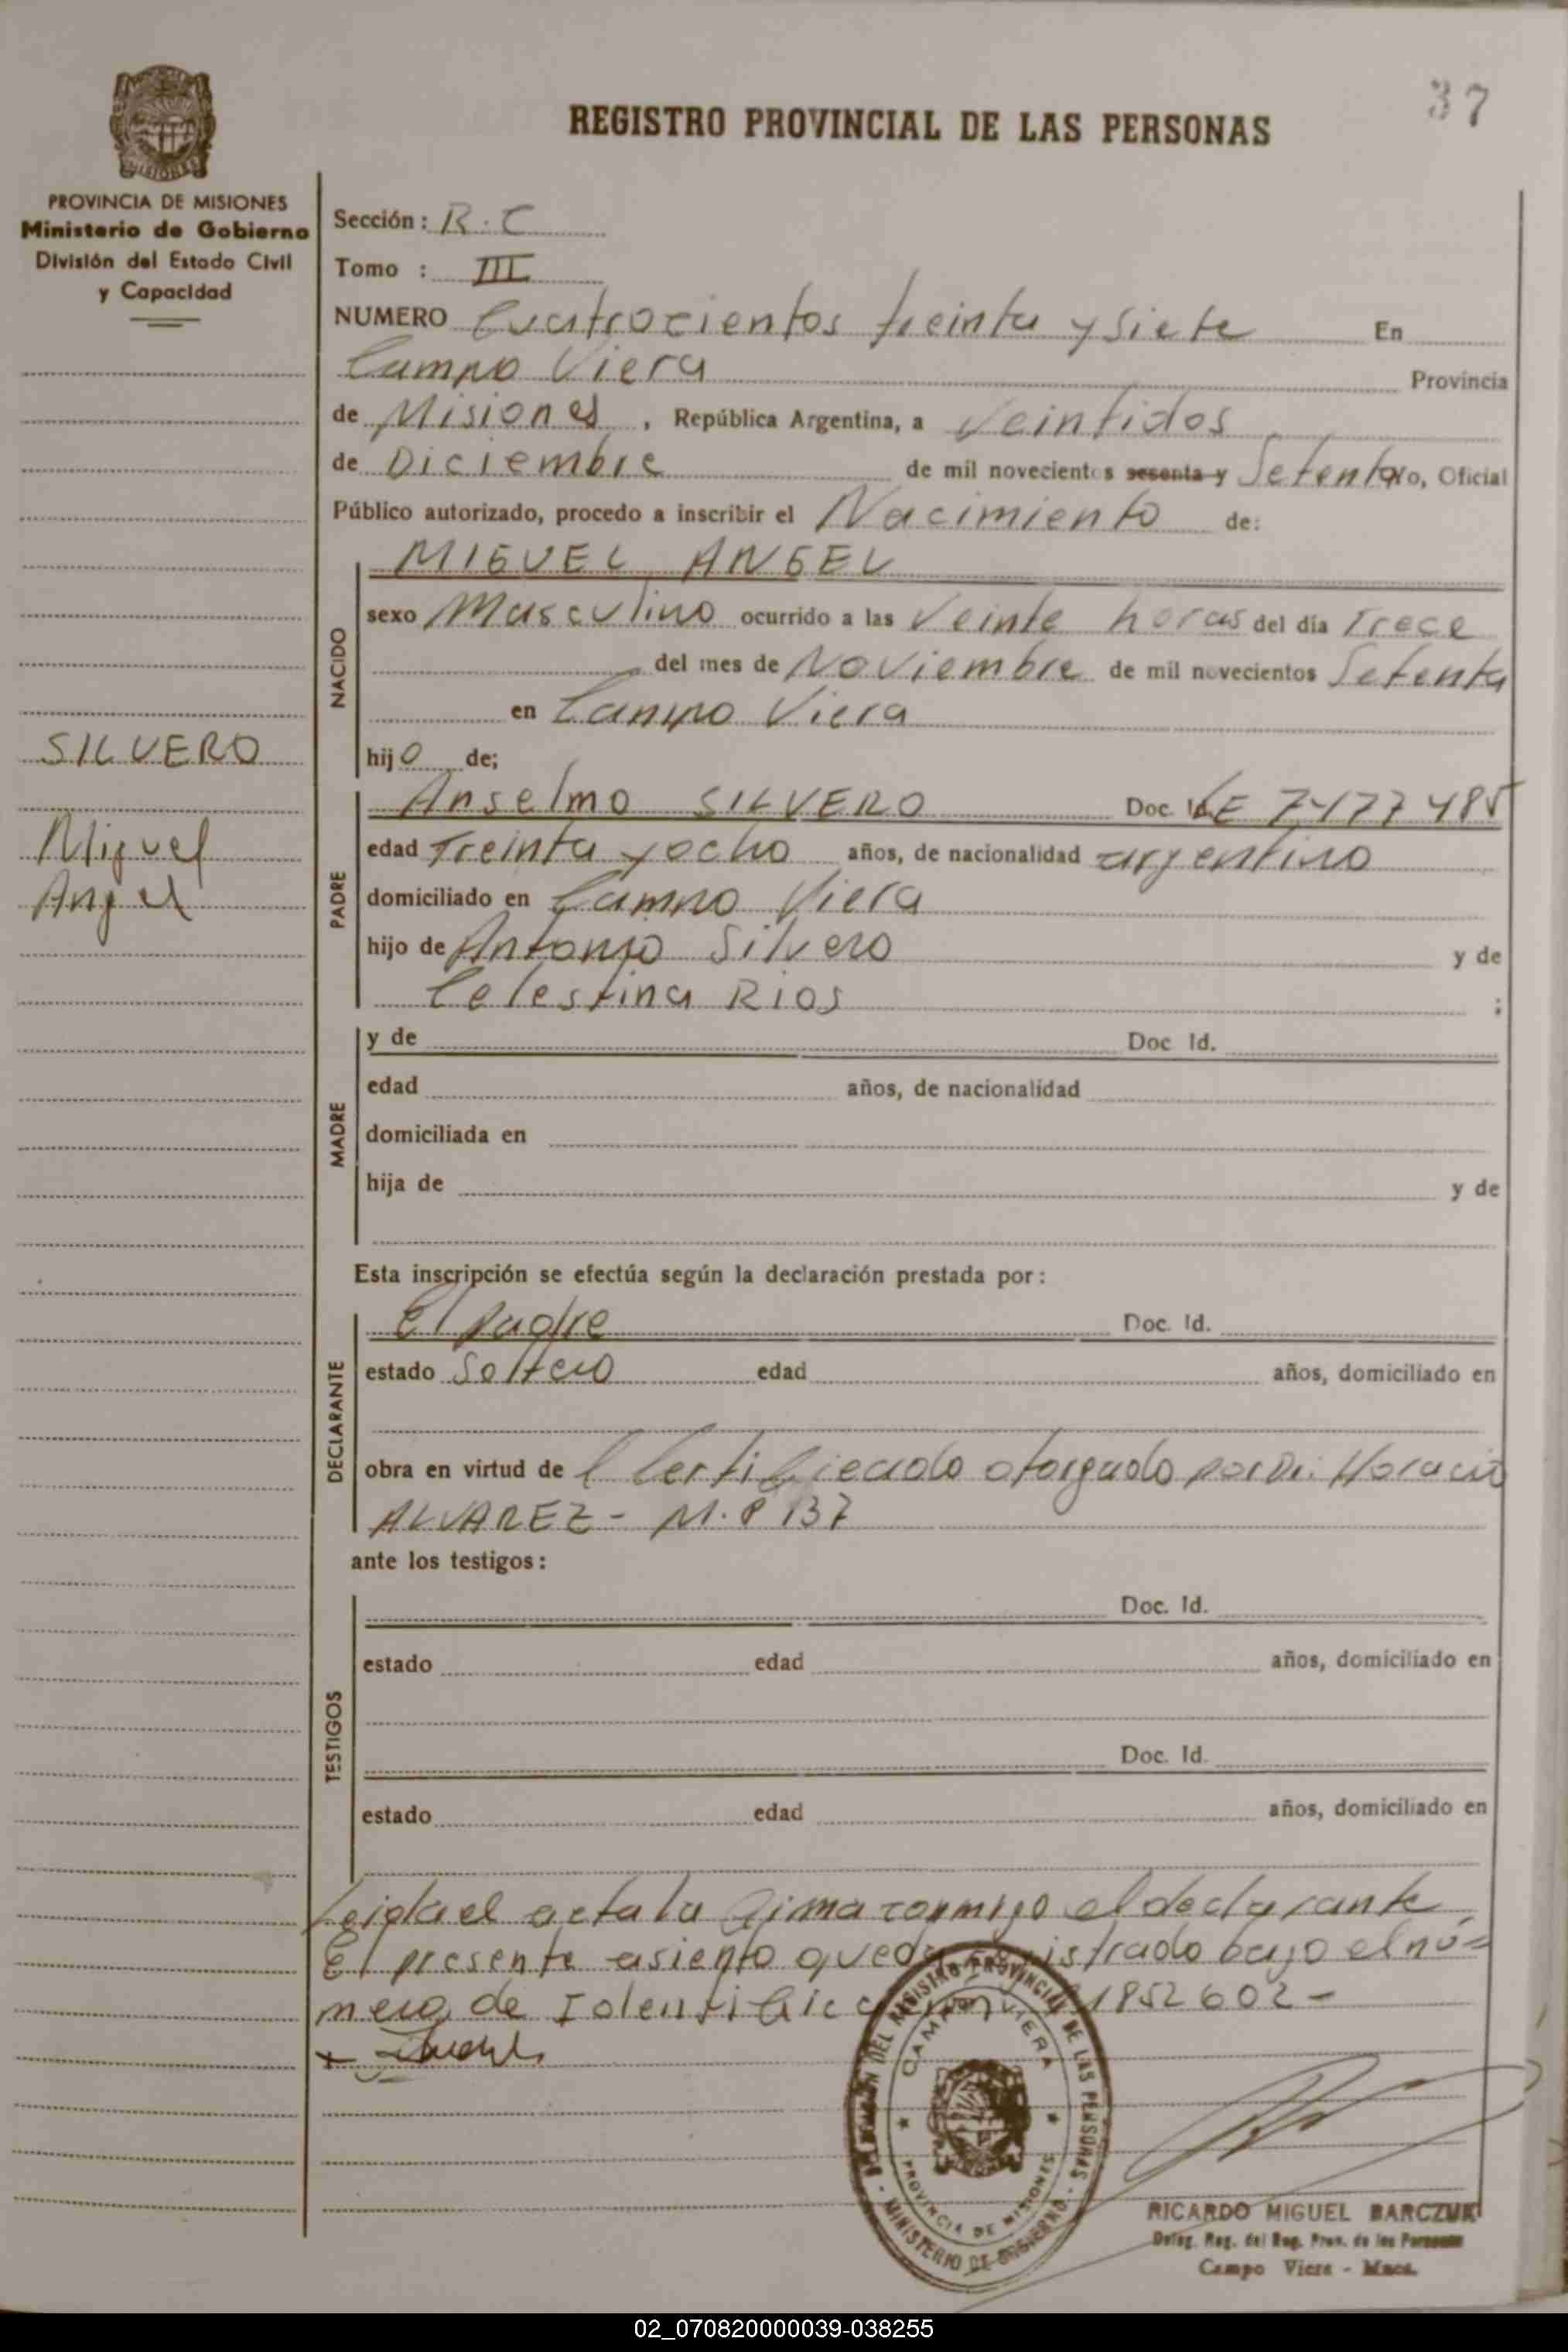 37
REGISTRO PROVINCIAL DE LAS PERSONAS
MISIONES
PROVINCIA DE MISIONES
Ministerio de Gobierno
División del Estado Civil
y Capacidad
SILVERO
Miguel
Angel
Sección: R.C
Tomo : III
NUMERO Cuatrocientos treinta y siete En
Campo Viera Provincia
de Misiones, República Argentina, a Veintidos
de Diciembre de mil novecientos sesenta y Setenta Yo, Oficial
Público autorizado, procedo a inscribir el Nacimiento de:
NACIDO
MIGUEL ANGEL
sexo Masculino ocurrido a las Veinte horas del día Trece
del mes de Noviembre de mil novecientos Setenta
en Campo Viera
hijo de;
PADRE
Anselmo SILVERO Doc. Id. LE 7477485
edad Treinta y ocho años, de nacionalidad argentino
domiciliado en Campo Viera
hijo de Antonio Silvero y de
Celestina Rios ;
MADRE
y de Doc Id.
edad años, de nacionalidad
domiciliada en
hija de y de
Esta inscripción se efectúa según la declaración prestada por:
DECLARANTE
El padre Doc. Id.
estado Soltero edad años, domiciliado en
obra en virtud de l Certificado otorgado por Dr. Horacio
ALVAREZ - M.P 137
ante los testigos:
TESTIGOS
Doc. Id.
estado edad años, domiciliado en
Doc. Id.
estado edad años, domiciliado en
Leida el acta la firma conmigo el declarante
El presente asiento queda registrado bajo el nú=
mero de 1852602-
DEL REGISTRO PROVINCIAL DE LAS PERSONAS - MINISTERIO DE GOBIERNO -
CAMPO VIERA
PROVINCIA DE MISIONES
RICARDO MIGUEL BARCZUK
Deleg. Reg. del Reg. Prov. de las Personas
Campo Viera - Mnes.
02_070820000039-038255